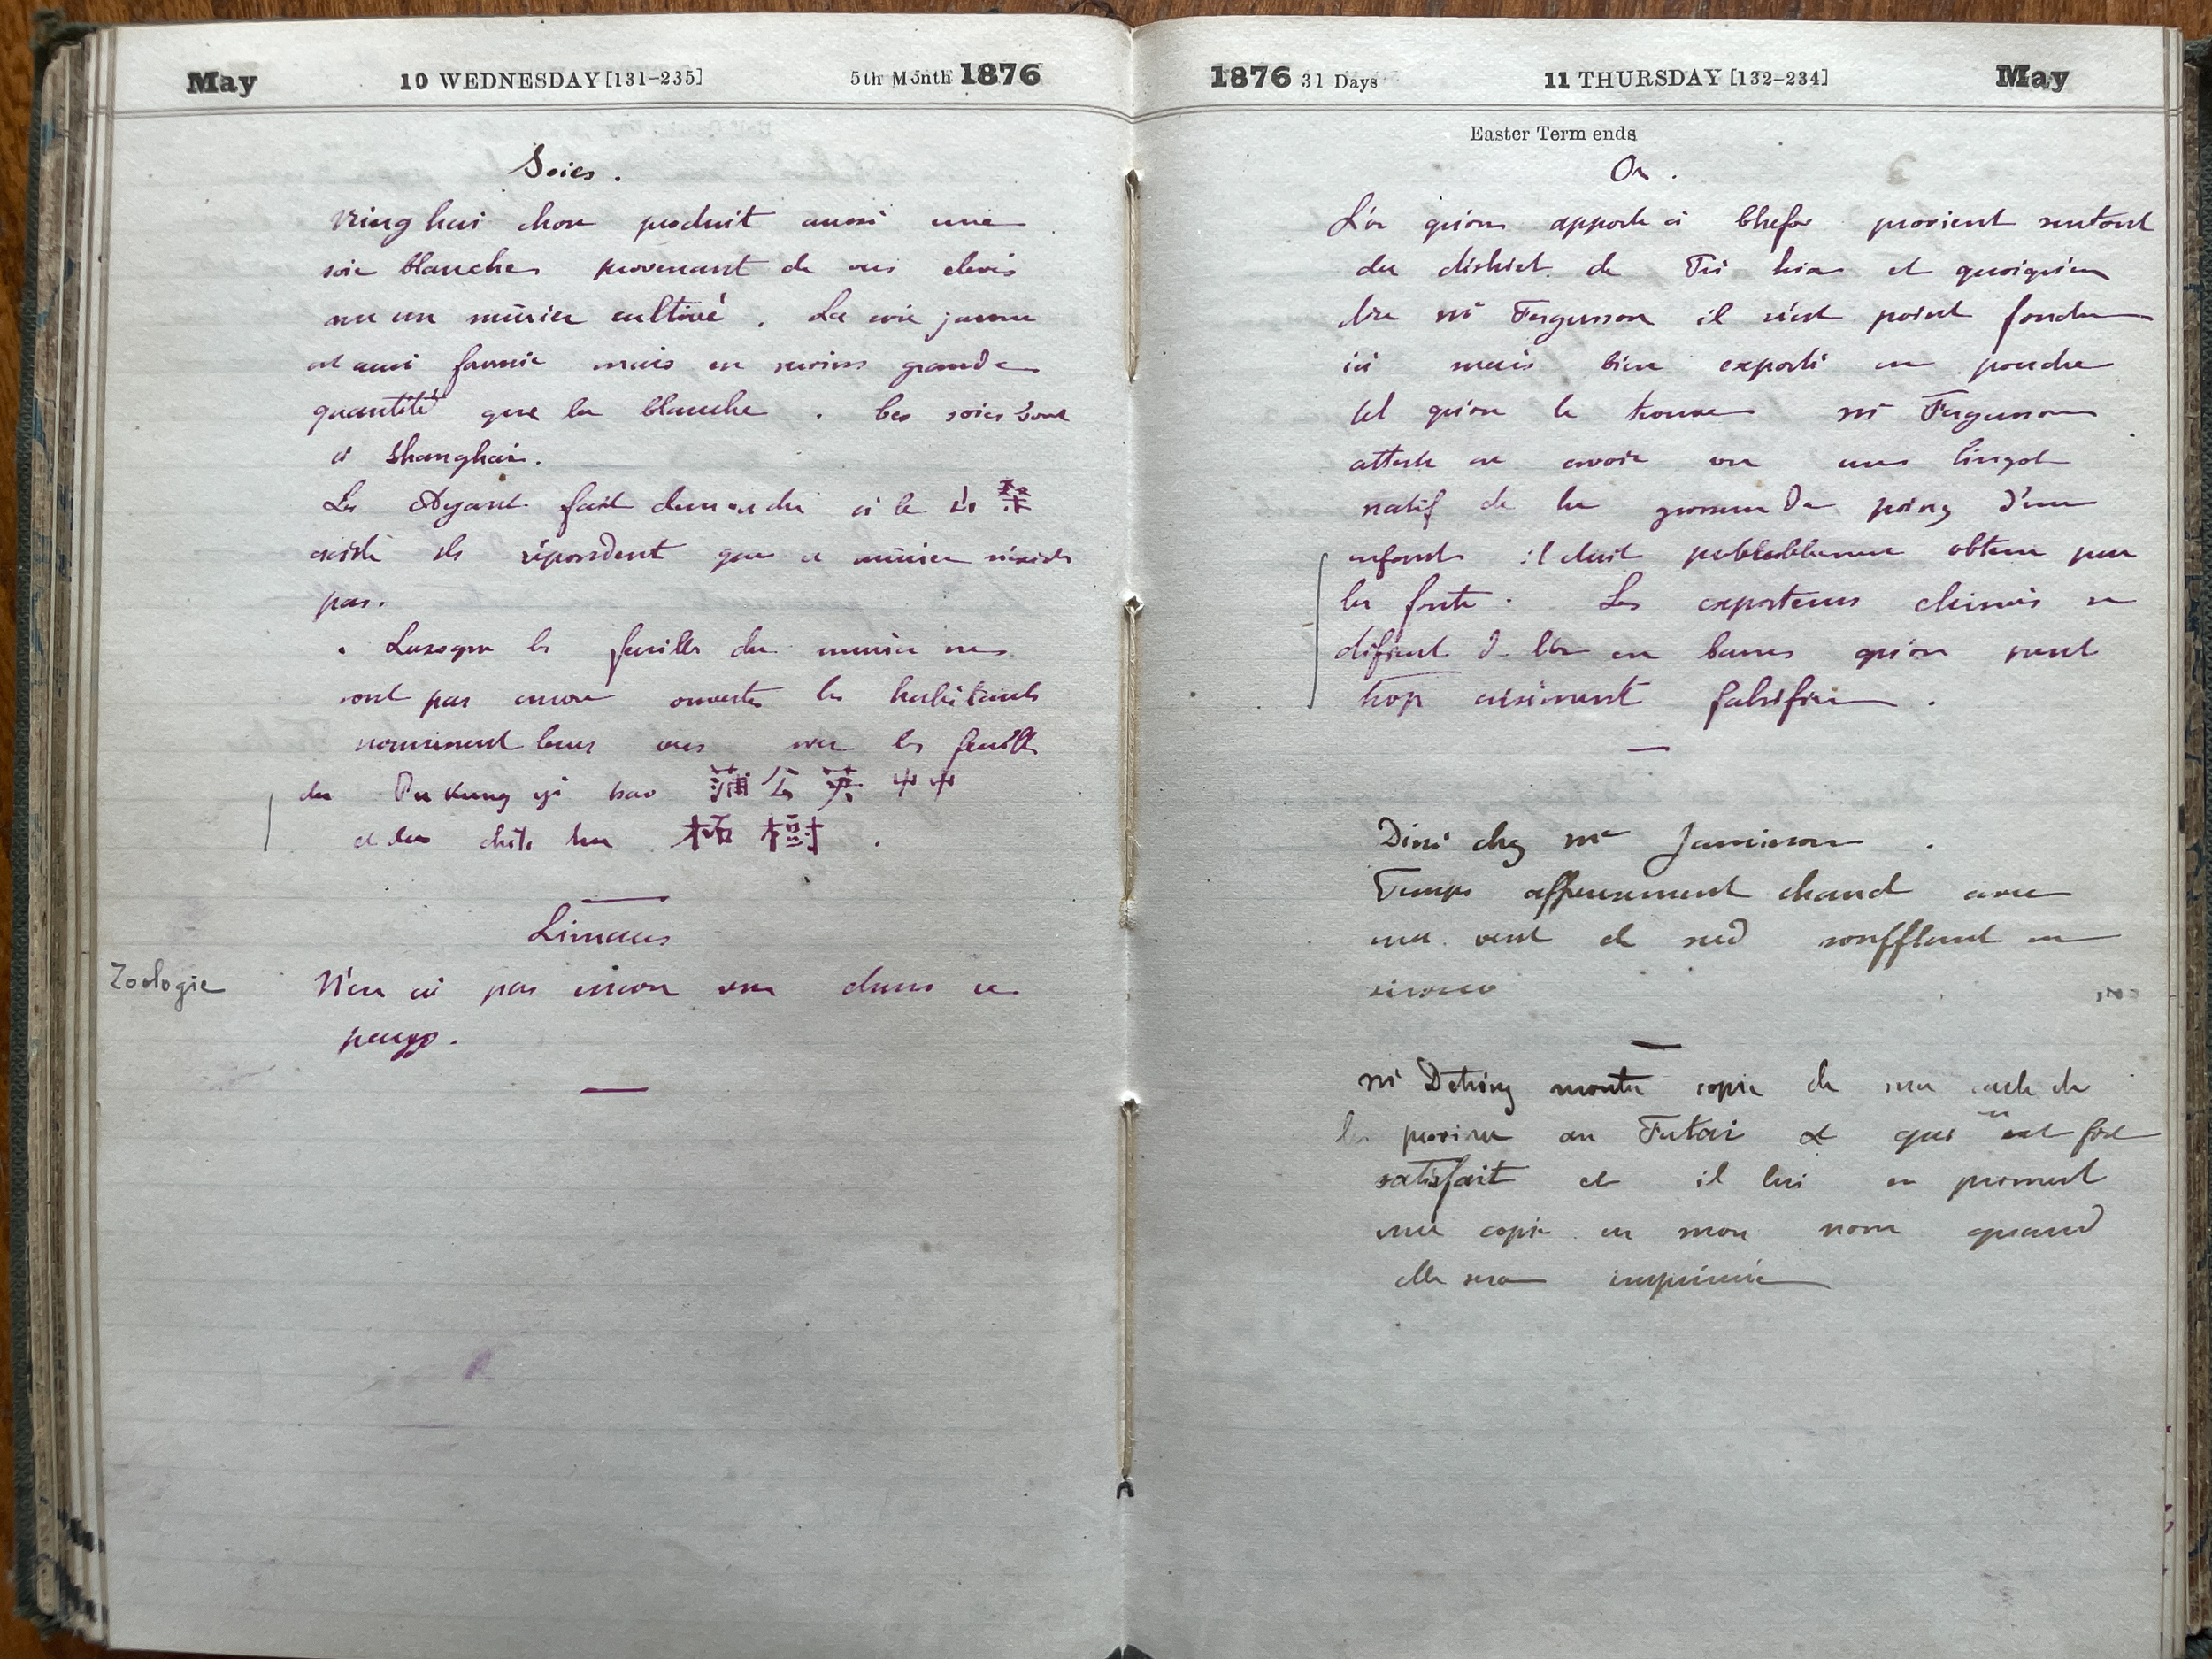 May 10 WEDNESDAY [131-235] 5th Month 1876
Soies.
Ning hai chou produit aussi une
soie blanche provenant de vers elevés
sur un mûrier cultivé. La soie jaune
est aussi fournie mais en moins grande
quantité que la blanche. Ces soies vont
à Shanghai.
Les Ayant fait demander si le 山桑
existe ils répondent que ce mûrier n'existe
pas.
Lorsque les feuilles du mûrier ne
sont pas encore ouvertes les habitants
nourrissent leurs vers avec les feuilles
du Pu kung yi tsao 蒲公英艸
et du chih hu 柘樹.
Limaces
Zoologie
N'en ai pas encore vu dans ce
pays.
1876 31 Days 11 THURSDAY [132-234] May
Easter Term ends
Or.
L'or qu'on apporte à Chefoo provient surtout
du district de hia et quoiqu'en
dise Mr Fergusson il n'est point fondu
ici mais bien exporté en poudre
tel qu'on le trouve Mr Fergusson
atteste en avoir vu un lingot
natif de la grosseur du poing d'un
enfant il était probablement obtenu par
la fonte. Les exporteurs chinois se
défient de l'or en barres qu'on peut
trop aisément falsifier.
Diné chez Mr Jamieson.
Temps affreusement chaud avec
un vent de sud soufflant en
siroco
Mr Detring montre copie de ma carte de
la province au Futai qui en est fort
satisfait et il lui en promet
une copie en mon nom quand
elle sera imprimée